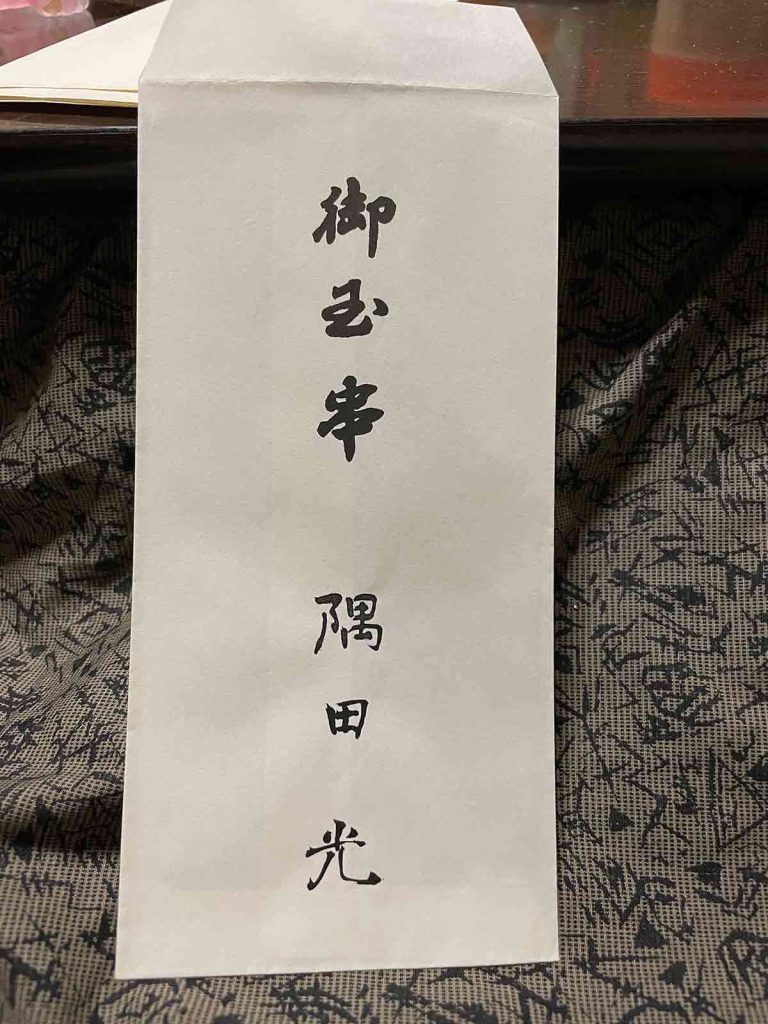 御玉串
隅田光